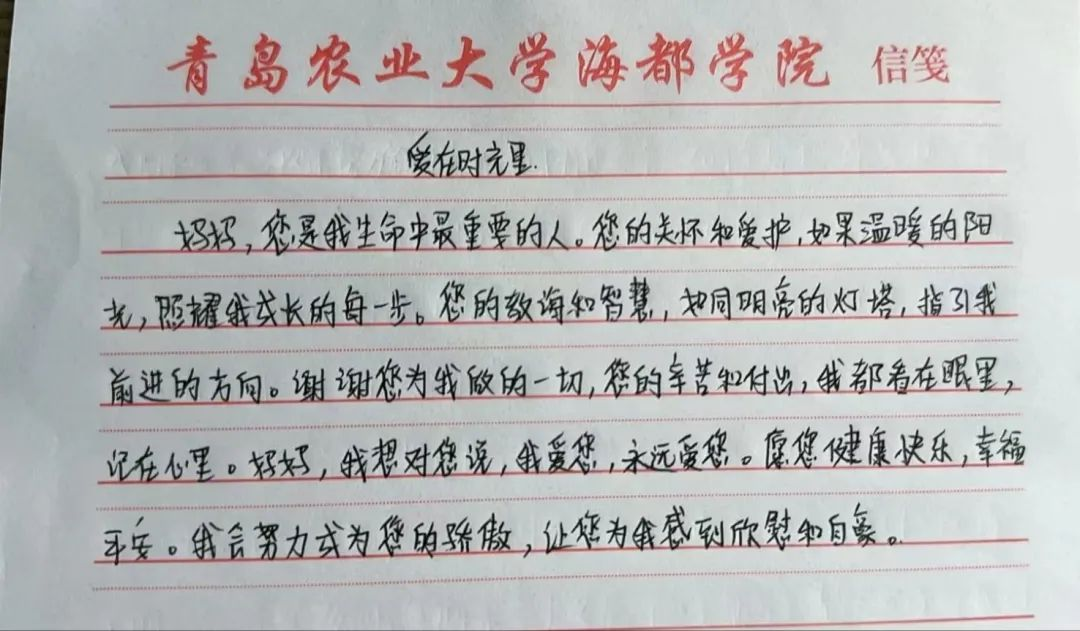 青岛农业大学海都学院 信笺
爱在时光里.
妈妈，您是我生命中最重要的人。您的关怀和爱护，如果温暖的阳
光，照耀我成长的每一步。您的教诲和智慧，如同明亮的灯塔，指引我
前进的方向。谢谢您为我做的一切，您的辛苦和付出，我都看在眼里，
记在心里。妈妈，我想对您说，我爱您，永远爱您。愿您健康快乐，幸福
平安。我会努力成为您的骄傲，让您为我感到欣慰和自豪。